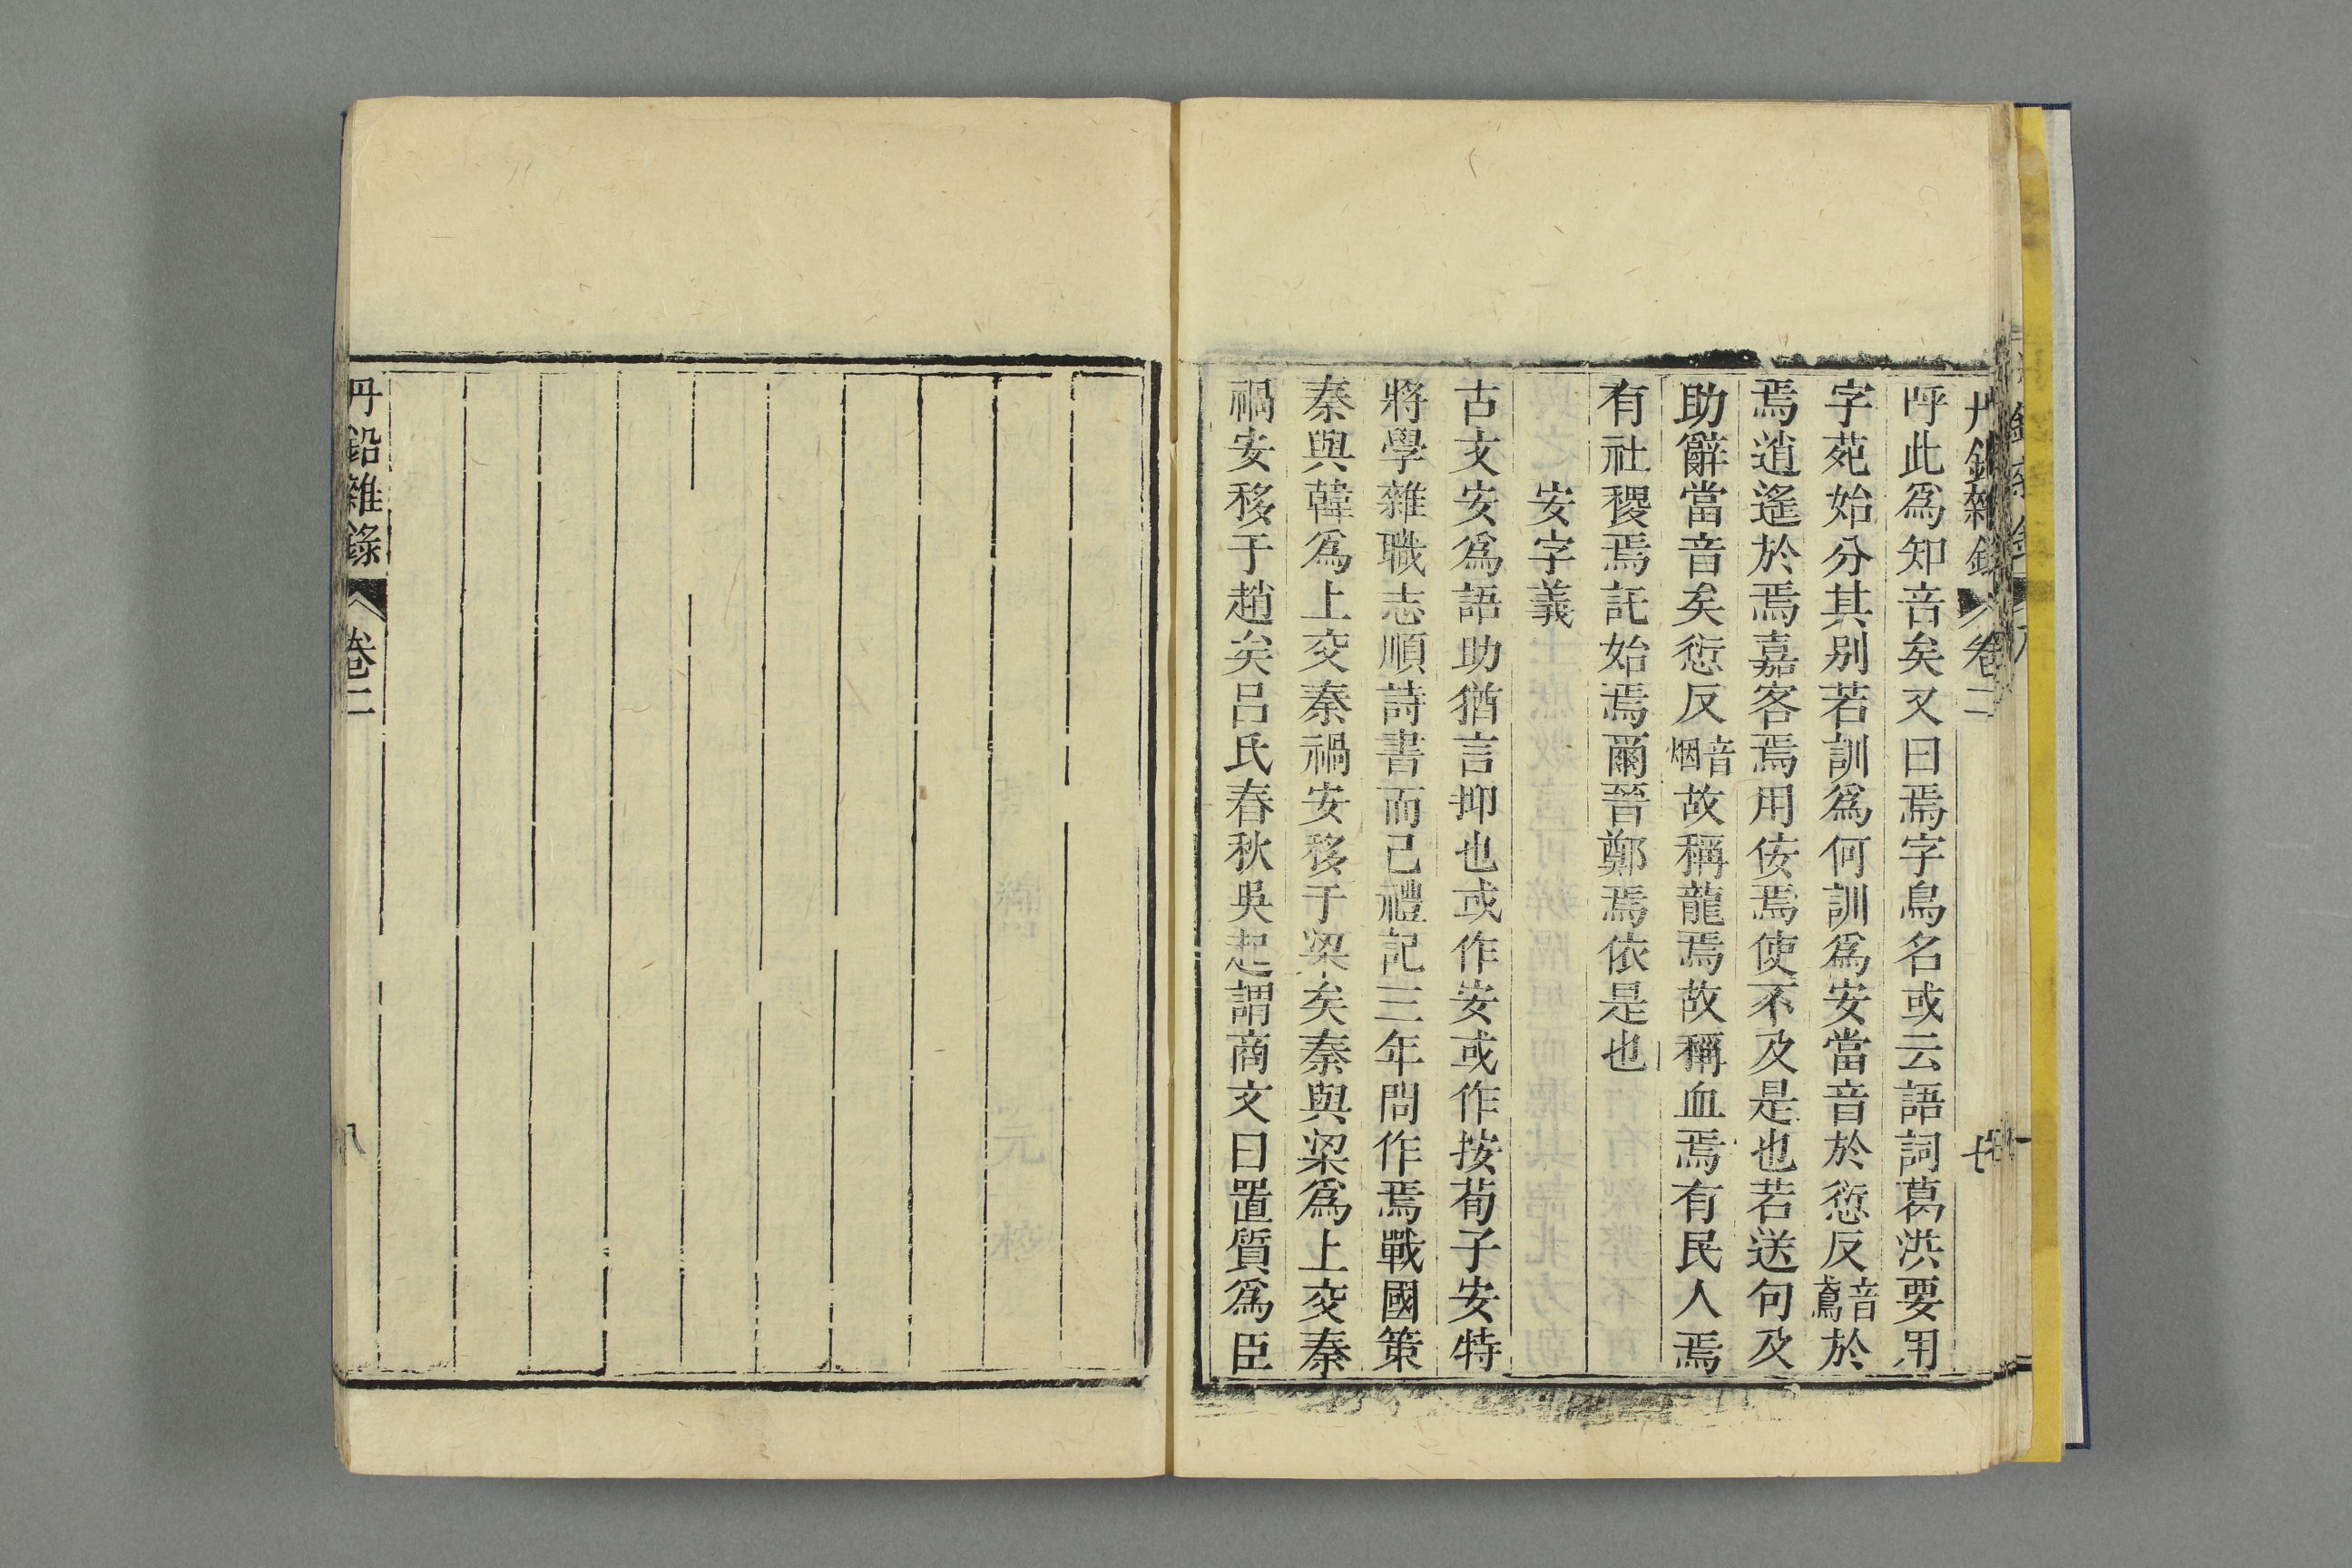 丹鉛雜錄 卷二 七
呼此爲知音矣又曰焉字鳥名或云語詞葛洪要用
字苑始分其別若訓爲何訓爲安當音於愆反音鳶於
焉逍遙於焉嘉客焉用佞焉使不及是也若送句及
助辭當音矣愆反音烟故稱龍焉故稱血焉有民人焉
有社稷焉託始焉爾晉鄭焉依是也
安字義
古文安爲語助猶言抑也或作安或作按荀子安特
將學雜職志順詩書而已禮記三年問作焉戰國策
秦與韓爲上交秦禍安移于梁矣秦與梁爲上交秦
禍安移于趙矣呂氏春秋吳起謂商文曰置質爲臣
丹鉛雜錄 卷二 八